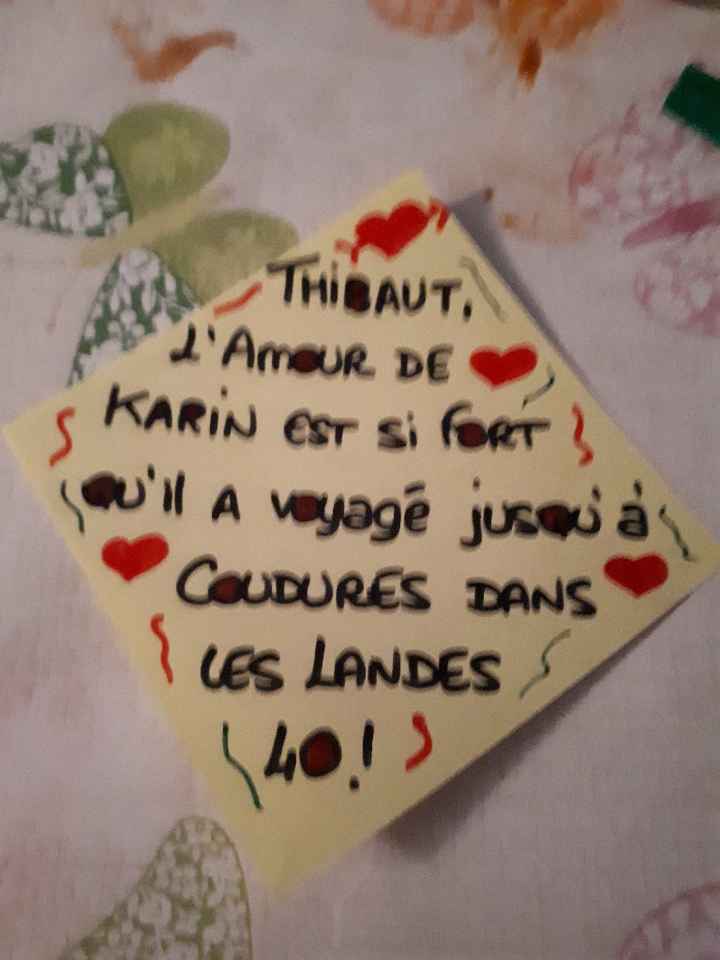 THIBAUT,
L'AMOUR DE
KARIN EST Si FORT
QU'il A voyagé jusqu'à
COUDURES DANS
LES LANDES
40!